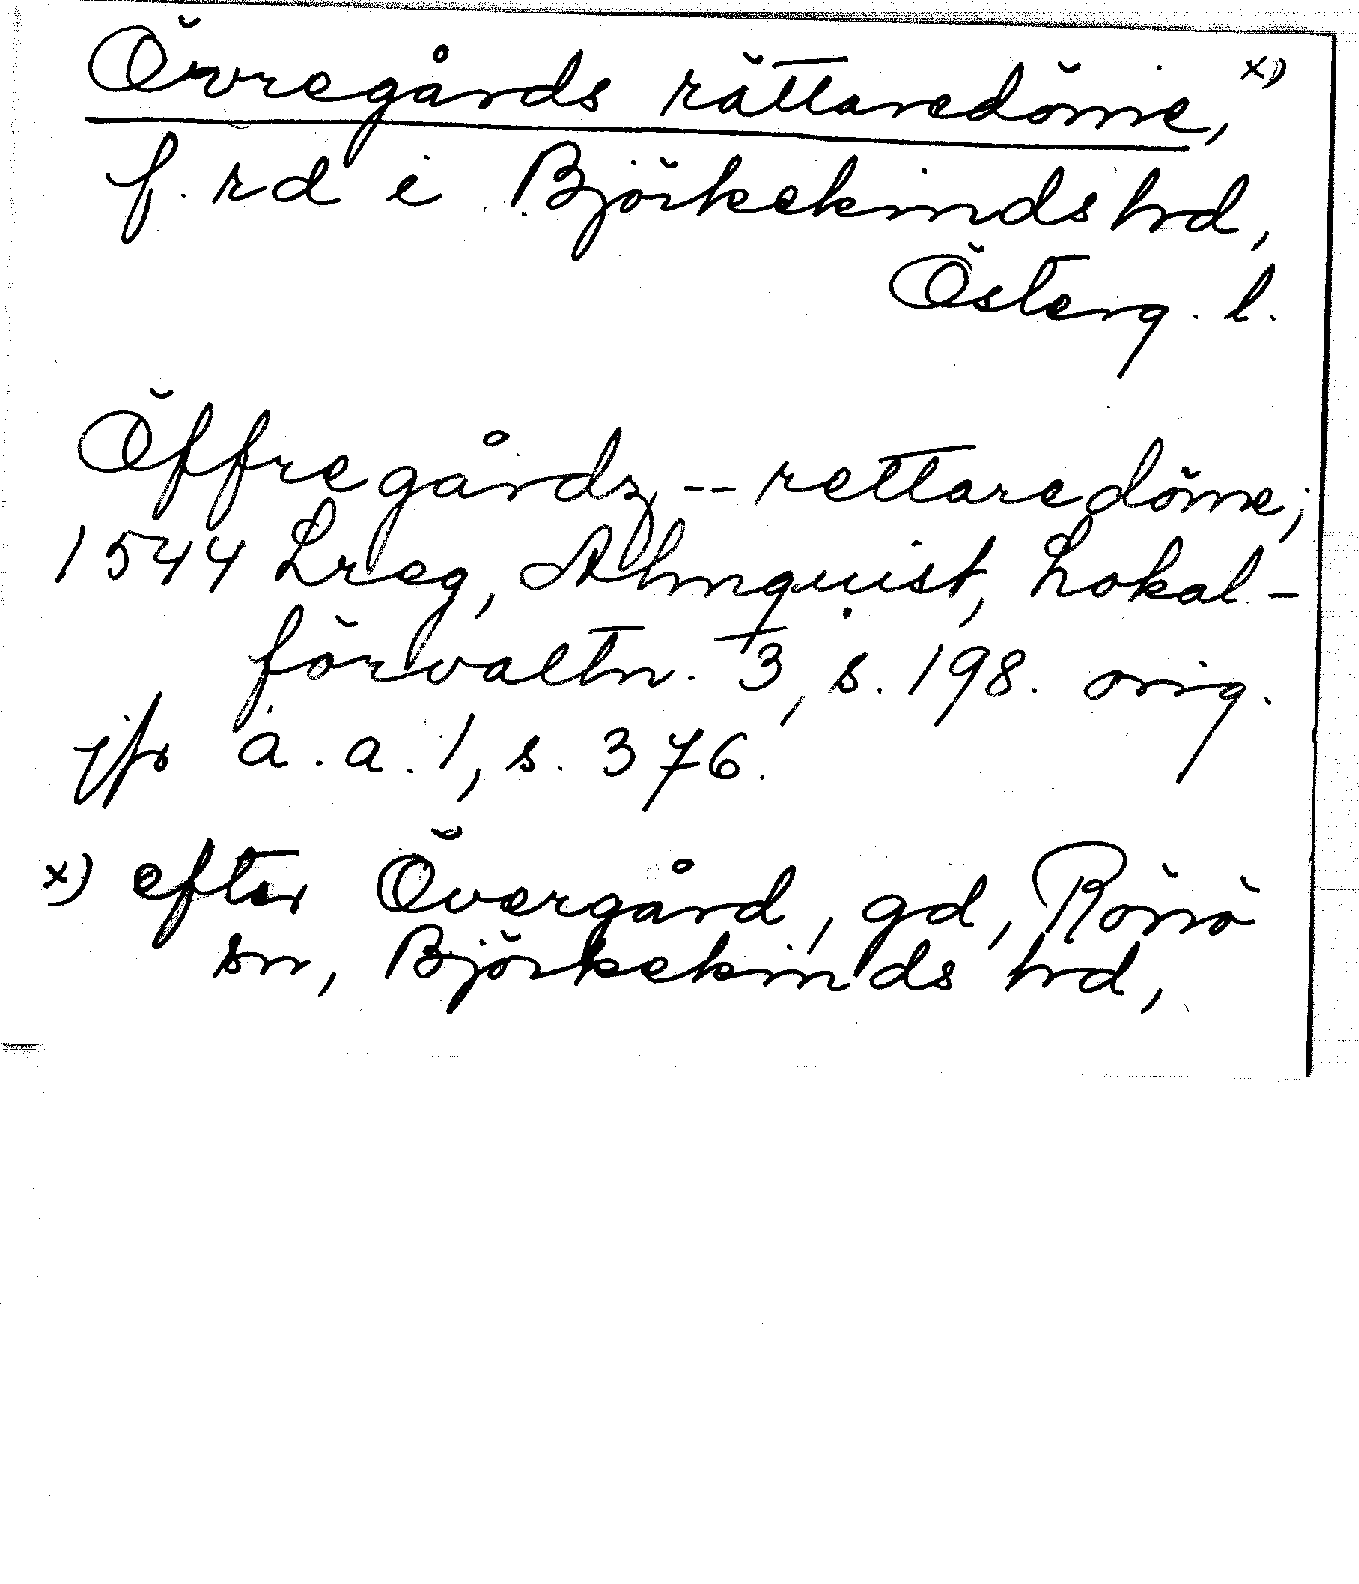 Övregårds rättaredöme, x)
f. rd i Björkekinds hrd,
Österg. l.
Öffregårdz -- rettaredöme;
1544 Lreg, Almquist, Lokal-
förvaltn. 3, s. 198. orig.
jfr a. a. 1, s. 376.
x) efter Övergård, gd, Rönö
sn, Björkekinds hrd,